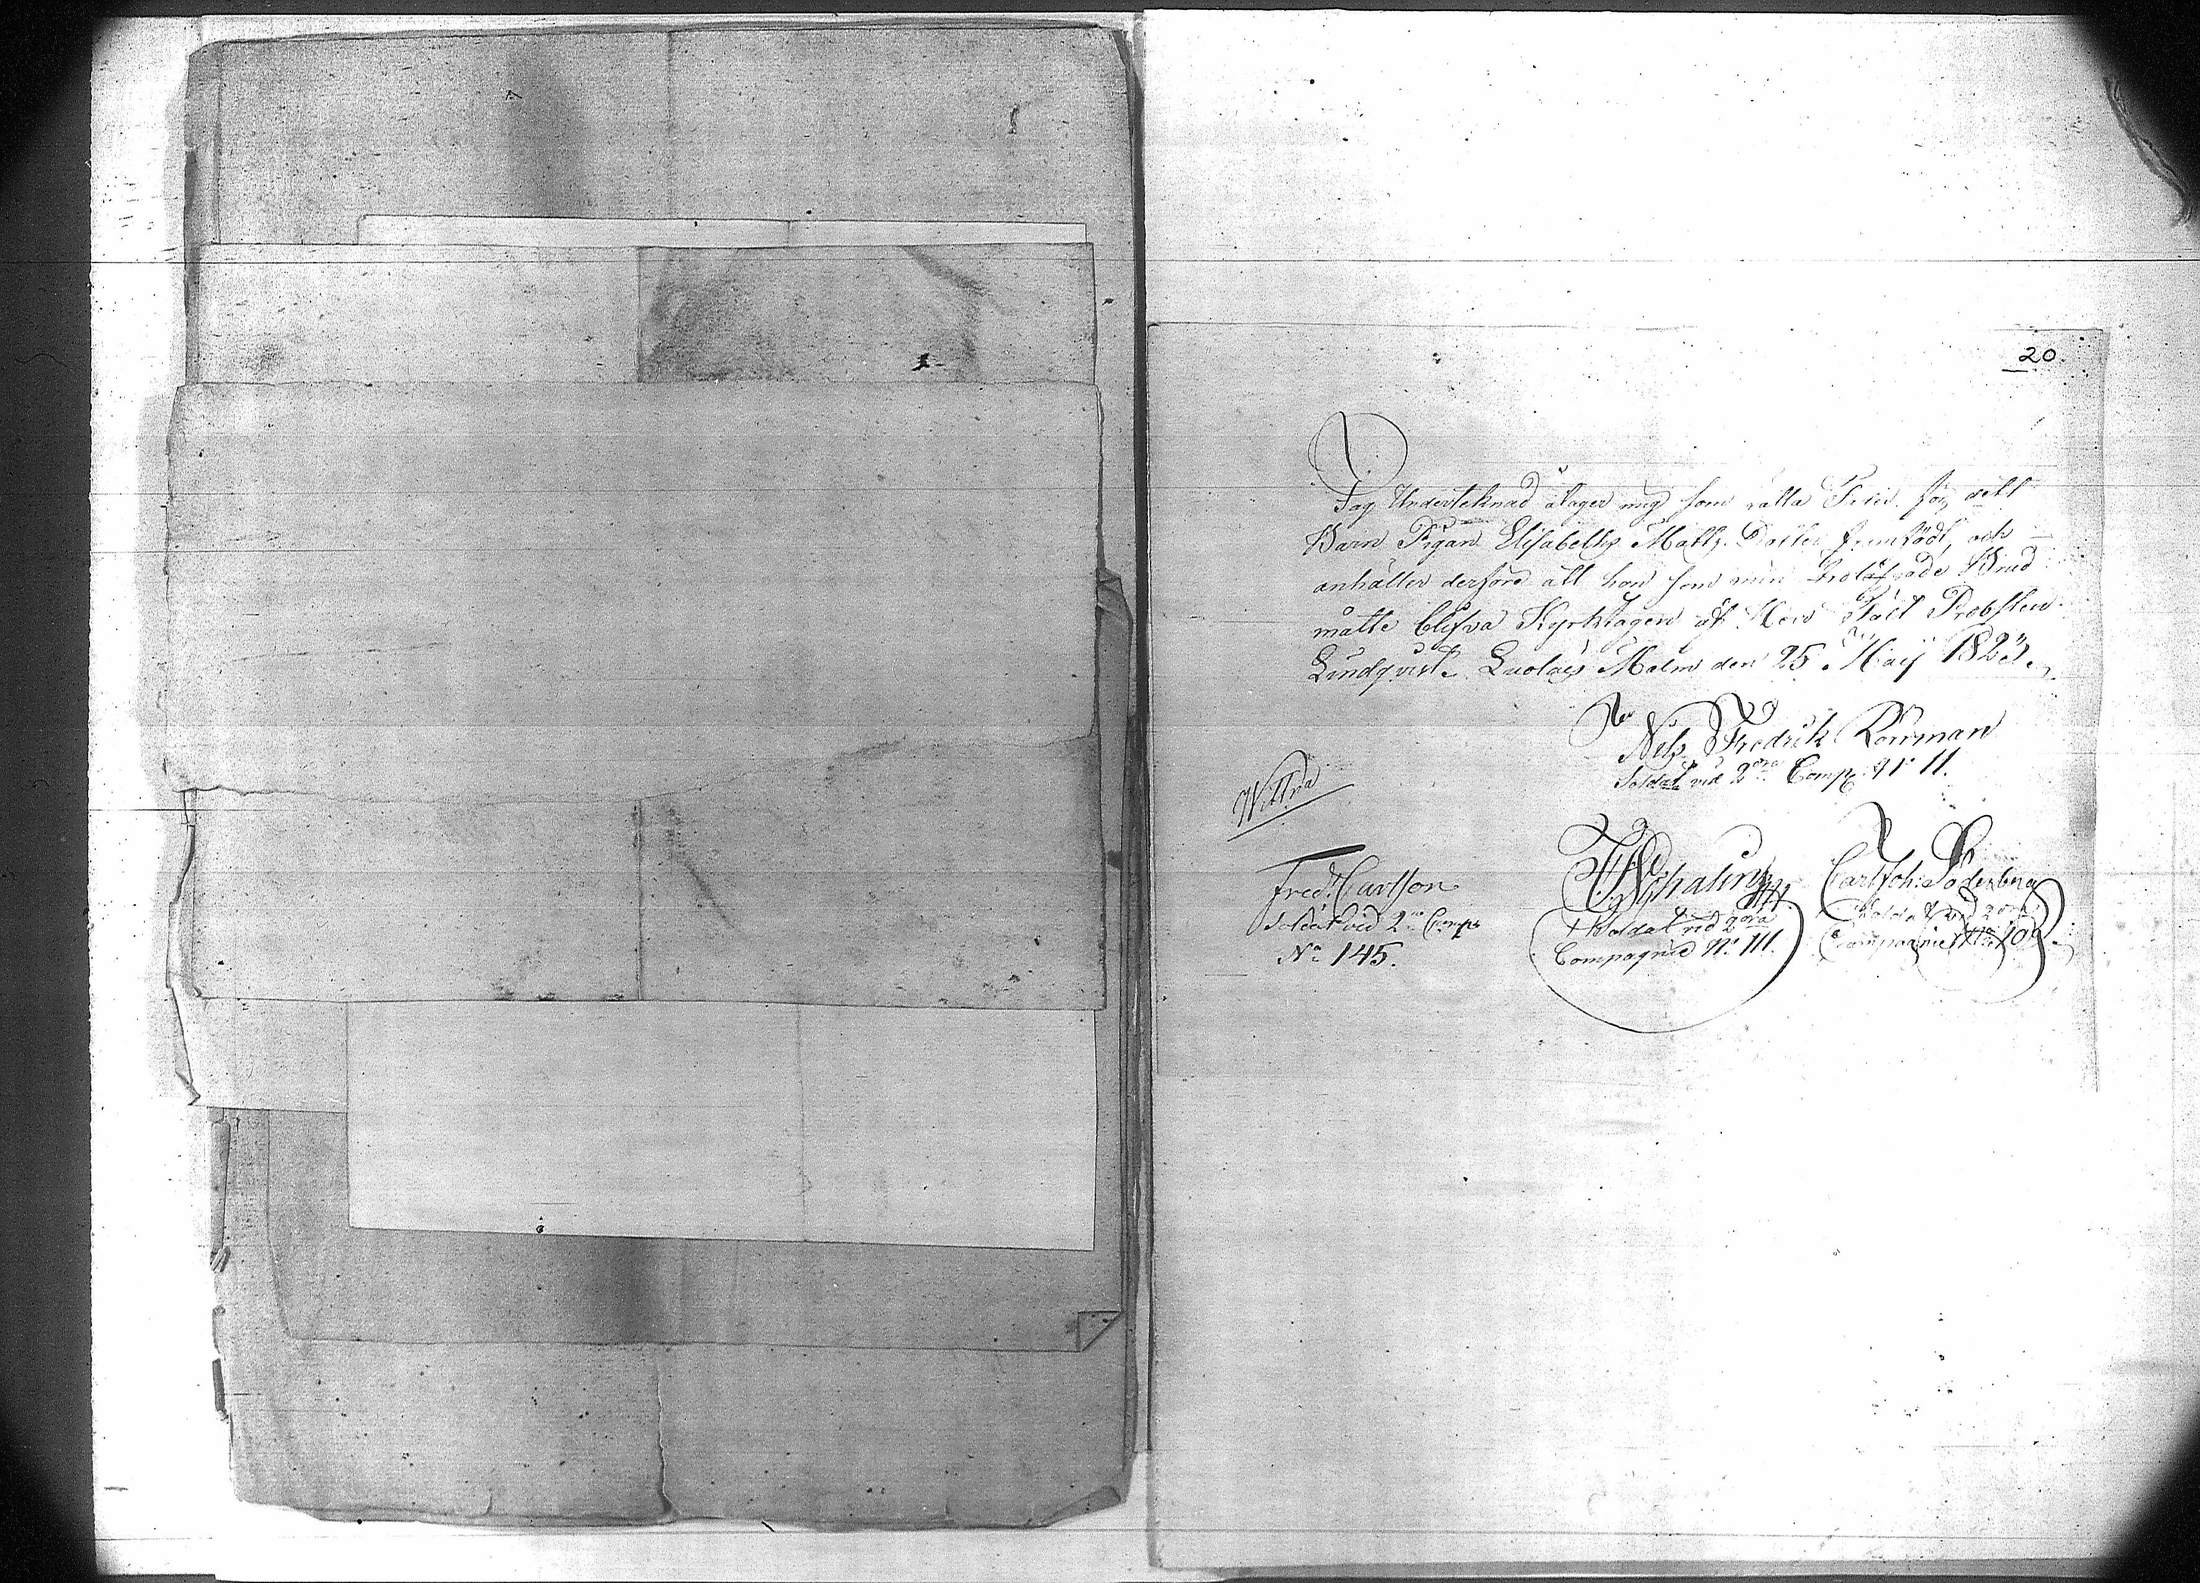 20.
Jag Underteknad åtager mig som rätta Fader för dett
Barn Pigan Elisabeth Matts Dotter framfödt, och
anhåller derföre att hon som min Trolåfvade Brud
måtte blifva Kyrktagen af Herr Fält Probsten
Lindqvist. Malm den 25 Maij 1823.
Nils Fredrik
Soldat vid 2dra Comp. N° 11.
Wittna
Fred: Carlsson
Soldat vid 2 Comp
N° 145.
Soldat vid 2dra
Compagnie N° 111.
Carl Joh: Söderberg
Soldat vid 2dra
Compagniet N°